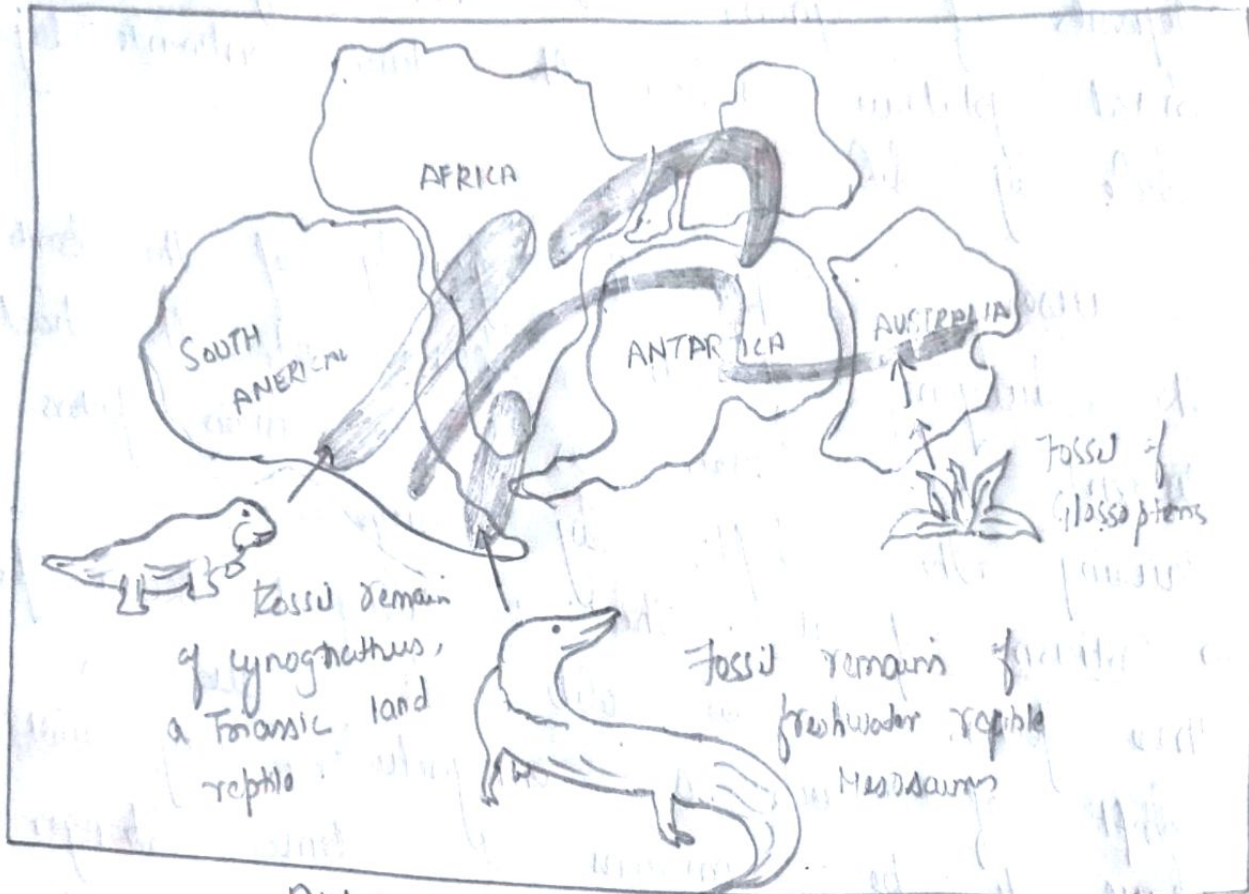 AFRICA
SOUTH
AMERICA
ANTARTICA
AUSTRALIA
Fossil of
Glossopteris
Fossil remain
of cynognathus,
a Triassic land
reptile
Fossil remains of
freshwater reptile
Mesosaurus